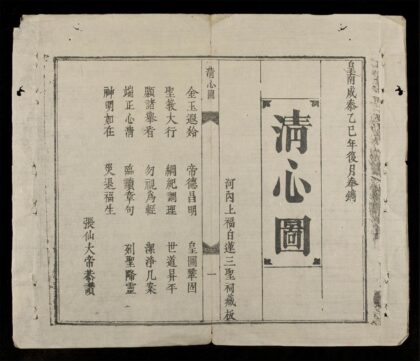 皇南成泰乙巳年復月奉鐫
清心圖
河內上福白蓮三聖祠藏板
清心圖
一
金玉遐給 帝德昌明 皇圖鞏固
聖教大行 綱紀調理 世道昇平
願諸舉看 勿視為輕 潔淨几案
端正心清 臨讀章句 列聖降靈
神明如在 災退福生
張仙大帝恭讚